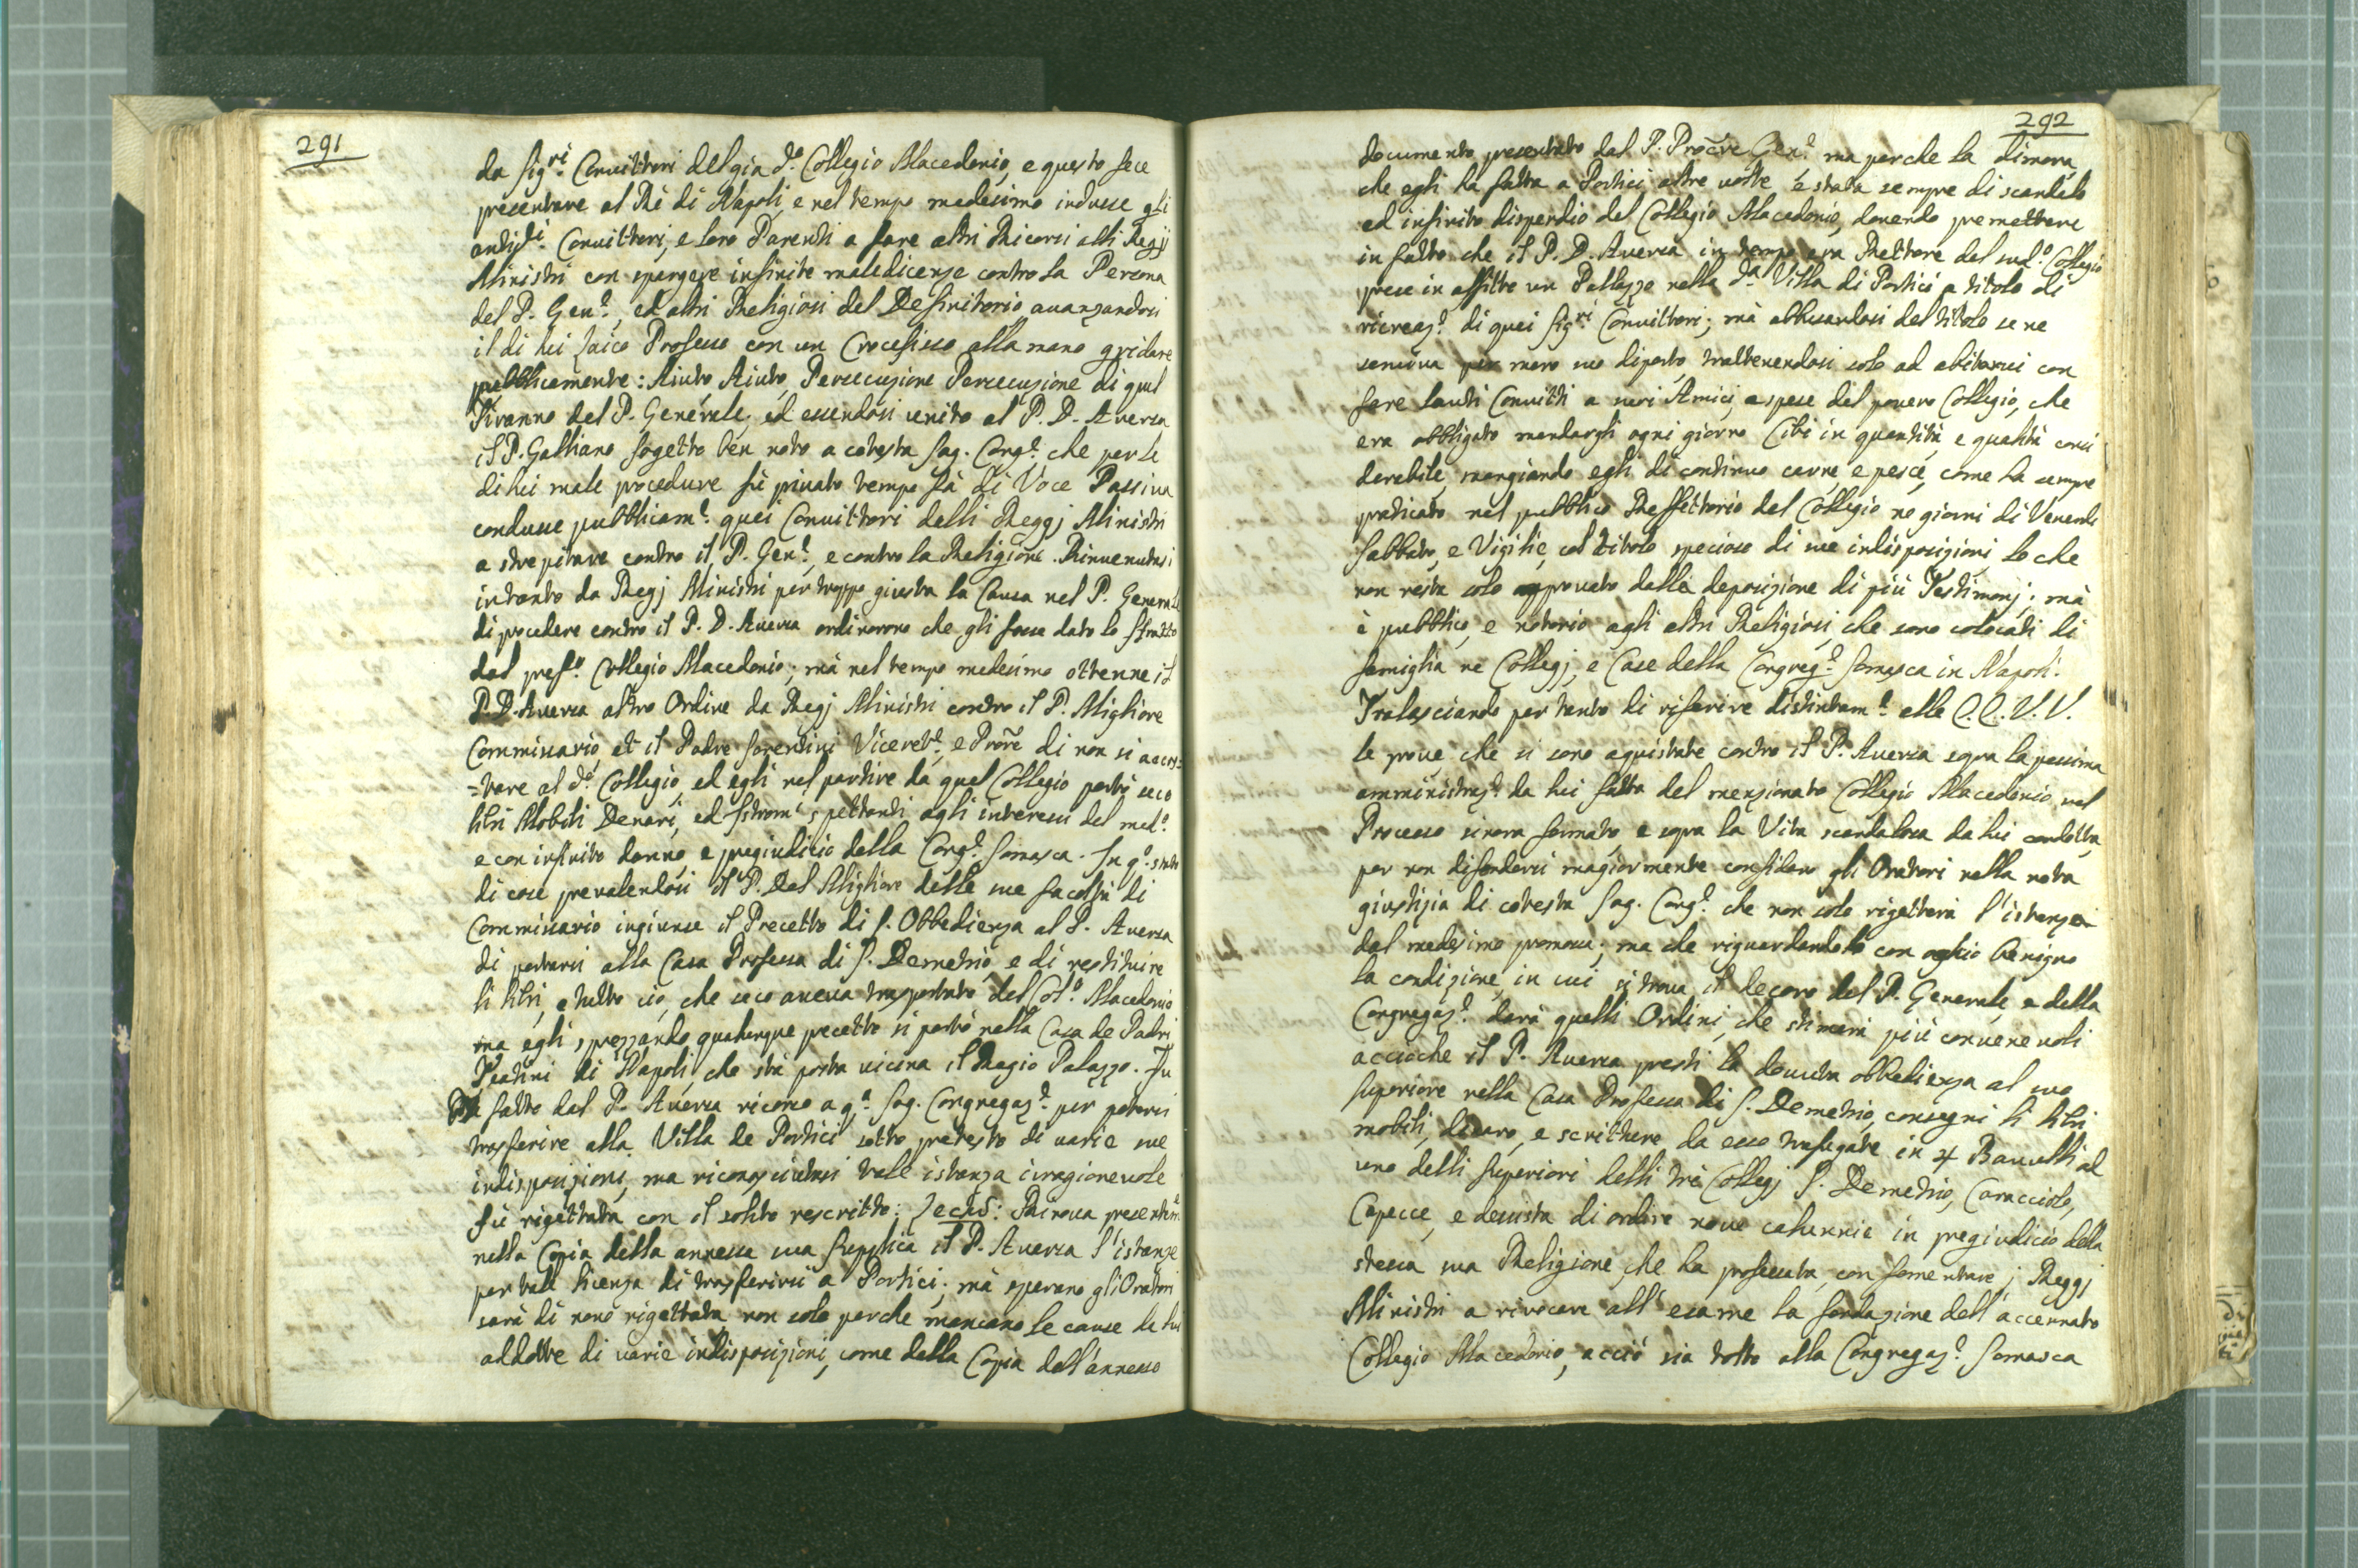 291
da Sig.ri Convittori del già d.o Collegio Macedonio, e questo fece
presentare al Rè di Napoli, e nel tempo medesimo indusse gli
antid.ti Convittori, e loro Parenti a fare altri Ricorsi alli Regij
Ministri con spargere infinite maledicenze contro la Persona
del P. Gen.e, ed altri Religiosi del Definitorio avanzandosi
il di lui laico Professo con un Crocefisso alla mano gridare
pubblicamente: Aiuto Aiuto, Persecuzione Persecuzione di quel
Tiranno del P. Generale, ed essendosi unito al P. D. Aversa
il P. Galliano sogetto ben noto a cotesta Sag. Cong.e che per le
di lui male procedure fù privato tempo fà di Voce Passiva
condusse pubblicam.e quei Convittori delli Reggj Ministri
a strepitare contro il P. Gen.e, e contro la Religione. Rinvenutasi
intanto da Regj Ministri pur troppo giusta la Causa nel P. Generale
di procedere contro il P. D. Aversa ordinorono che gli fosse dato lo sfratto
dal pref.o Collegio Macedonio; mà nel tempo medesimo ottenne il
P. D. Aversa altro Ordine da Regj Ministri contro il P. Migliore
Commissario, et il Padre Sorentini Viceret.e, e Prore di non si accos=
=tare al d.o Collegio, ed egli nel partire da quel Collegio portò seco
libri Mobili Denari, ed Istrom.i spettanti agli interessi del med.o
e con infinito danno, e pregiudicio della Cong.e Somasca. In q.o stato
di cose prevalendosi il P. Del Migliore delle sue facoltà di
Commissario ingiunse il Precetto di S. Obbedienza al P. Aversa
di portarsi alla Casa Professa di S. Demetrio, e di restituire
li libri, e tutto ciò, che seco aveva trasportato del Col.o Macedonio
ma egli sprezzando qualunque precetto si portò nella Casa de Padri
Teatini di Napoli, che stà posta vicina il Regio Palazzo. Fu
fatto dal P. Aversa ricorso a q.a Sag. Congregaz.e per potersi
trasferire alla Villa de Portici sotto pretesto di varie sue
indisposizioni, ma riconosciutasi tale istanza irragionevole
fù rigettata con il solito rescritto: Lectum: Rinova presentem.e
nella Copia della annessa sua Supplica il P. Aversa l'istanze
per tale licenza di trasferirsi a Portici; mà sperano gli Oratori
sarà di novo rigettata non solo perche mancano le cause da lui
addotte di varie indisposizioni, come della Copia dell'annesso
292
documento presentato dal P. Procre Gen.e ma perche la dimora,
che egli ha fatta a Portici altre volte è stata sempre di scandalo
ed infinito dispendio del Collegio Macedonio, dovendo premettere
in fatto che il P. D. Aversa in tempo era Rettore del sud.o Collegio
prese in affitto un Palazzo nella d.a Villa di Portici a titolo di
ricreaz.e di quei Sig.ri Convittori; mà abbusandosi del titolo se ne
serviva per mero suo diporto, trattenendosi solo ad abitarvi con
fare lauti Convitti a suoi Amici, a spese del povero Collegio, che
era obbligato mandargli ogni giorno Cibi in quantità, e qualità consi
derabile, mangiando egli di continuo carne, e pesce, come ha sempre
praticato nel pubblico Reffettorio del Collegio ne giorni di Venerdì
Sabbato, e Vigilie, col titolo specioso di sue indisposizioni, lo che
non resta solo approvato dalla deposizione di più Testimonj; mà
è pubblico, e notorio agli altri Religiosi, che sono colocati di
famiglia ne Collegj, e Case della Congreg.e Somasca in Napoli.
Tralasciando per tanto di riferire distintam.e alle E.E. V.V.
le prove che si sono aquistate contro il P. Aversa sopra la pessima
amministraz.e da lui fatta del menzionato Collegio Macedonio nel
Processo sinora formato, e sopra la Vita scandalosa da lui condotta,
per non difondersi magiormente confidano gli Oratori nella nota
giustizia di cotesta Sag. Cong.e che non solo rigetterà l'istanza
dal medesimo promossa; ma che riguardando con ochio benigno
la condizione, in cui si trova il decoro del P. Generale, e della
Congregaz.e darà quelli Ordini, che stimerà più convenevoli
accioche il P. Aversa presti la dovuta obbedienza al suo
Superiore nella Casa Professa di S. Demetrio, consegni li libri
mobili, denaro, e scritture da esso trafugate in 4 Baulli ad
uno delli Superiori delli trè Collegj S. Demetrio, Caracciolo,
Capecce, e desista di ordire nove calunnie in pregiudicio della
stessa sua Religione, che ha professata, con fomentare i Reggj
Ministri a rivocare all'esame la fondazione dell'accennato
Collegio Macedonio, acciò sia tolto alla Congregaz.e Somasca